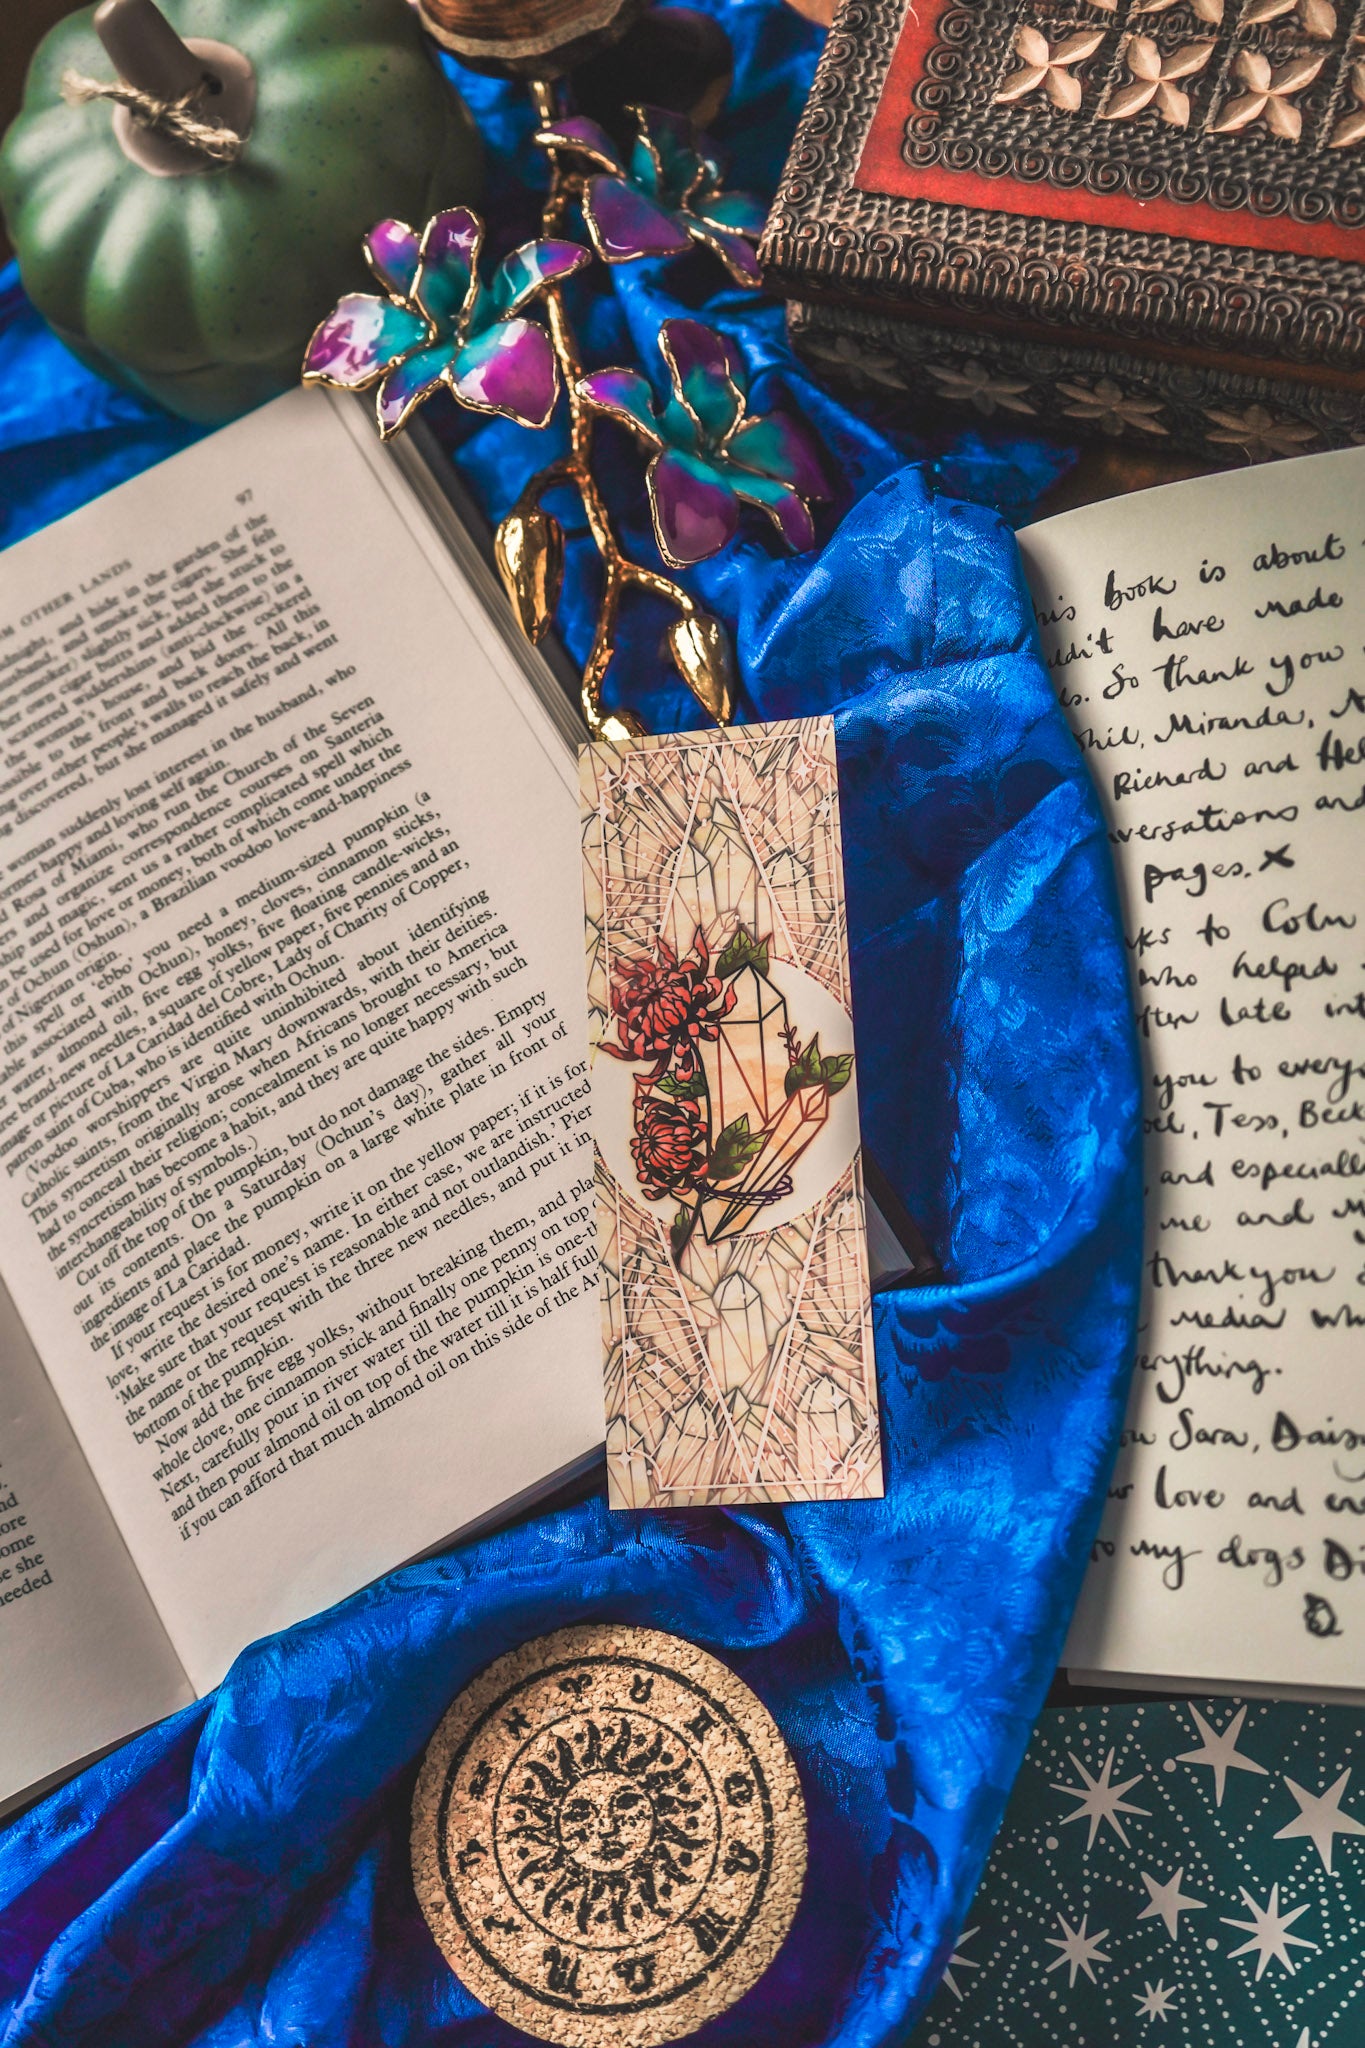 97
OTHER LANDS
and hide in the garden of the
husband, and smoke the cigars. She felt
slightly sick, but she stuck to
her own cigar butts and added them to the
scattered widdershins (anti-clockwise) in a
the woman's house, and hid the cockerel
to the front and back doors. All this
over other people's walls to reach the back, in
discovered, but she managed it safely and went
woman suddenly lost interest in the husband, who
happy and loving self again.
Rosa of Miami, who run the Church of the Seven
and organize correspondence courses on Santeria
and magic, sent us a rather complicated spell which
be used for love or money, both of which come under the
of Ochun (Oshun), a Brazilian voodoo love-and-happiness
of Nigerian origin.
this spell or 'ebbo' you need a medium-sized pumpkin (a
associated with Ochun), honey, cloves, cinnamon sticks,
water, almond oil, five egg yolks, five floating candle-wicks,
brand-new needles, a square of yellow paper, five pennies and an
image or picture of La Caridad del Cobre, Lady of Charity of Copper,
patron saint of Cuba, who is identified with Ochun.
(Voodoo worshippers are quite uninhibited about identifying
Catholic saints, from the Virgin Mary downwards, with their deities.
This syncretism originally arose when Africans brought to America
had to conceal their religion; concealment is no longer necessary, but
the syncretism has become a habit, and they are quite happy with such
interchangeability of symbols.)
Cut off the top of the pumpkin, but do not damage the sides. Empty
out its contents. On a Saturday (Ochun's day), gather all your
ingredients and place the pumpkin on a large white plate in front of
the image of La Caridad.
If your request is for money, write it on the yellow paper; if it is for
love, write the desired one's name. In either case, we are instructed
'Make sure that your request is reasonable and not outlandish.' Pier
the name or the request with the three new needles, and put it in
bottom of the pumpkin.
Now add the five egg yolks, without breaking them, and pla
whole clove, one cinnamon stick and finally one penny on top
Next, carefully pour in river water till the pumpkin is one-th
and then pour almond oil on top of the water till it is half full
if you can afford that much almond oil on this side of the
she
needed
book is about
have made
So thank you
Miranda,
Richard and
and
pages. x
to Colm
who helped
late
you to every
Tess,
and especiall
me and
thank you
media
Sara, Daisy
love and
my dogs